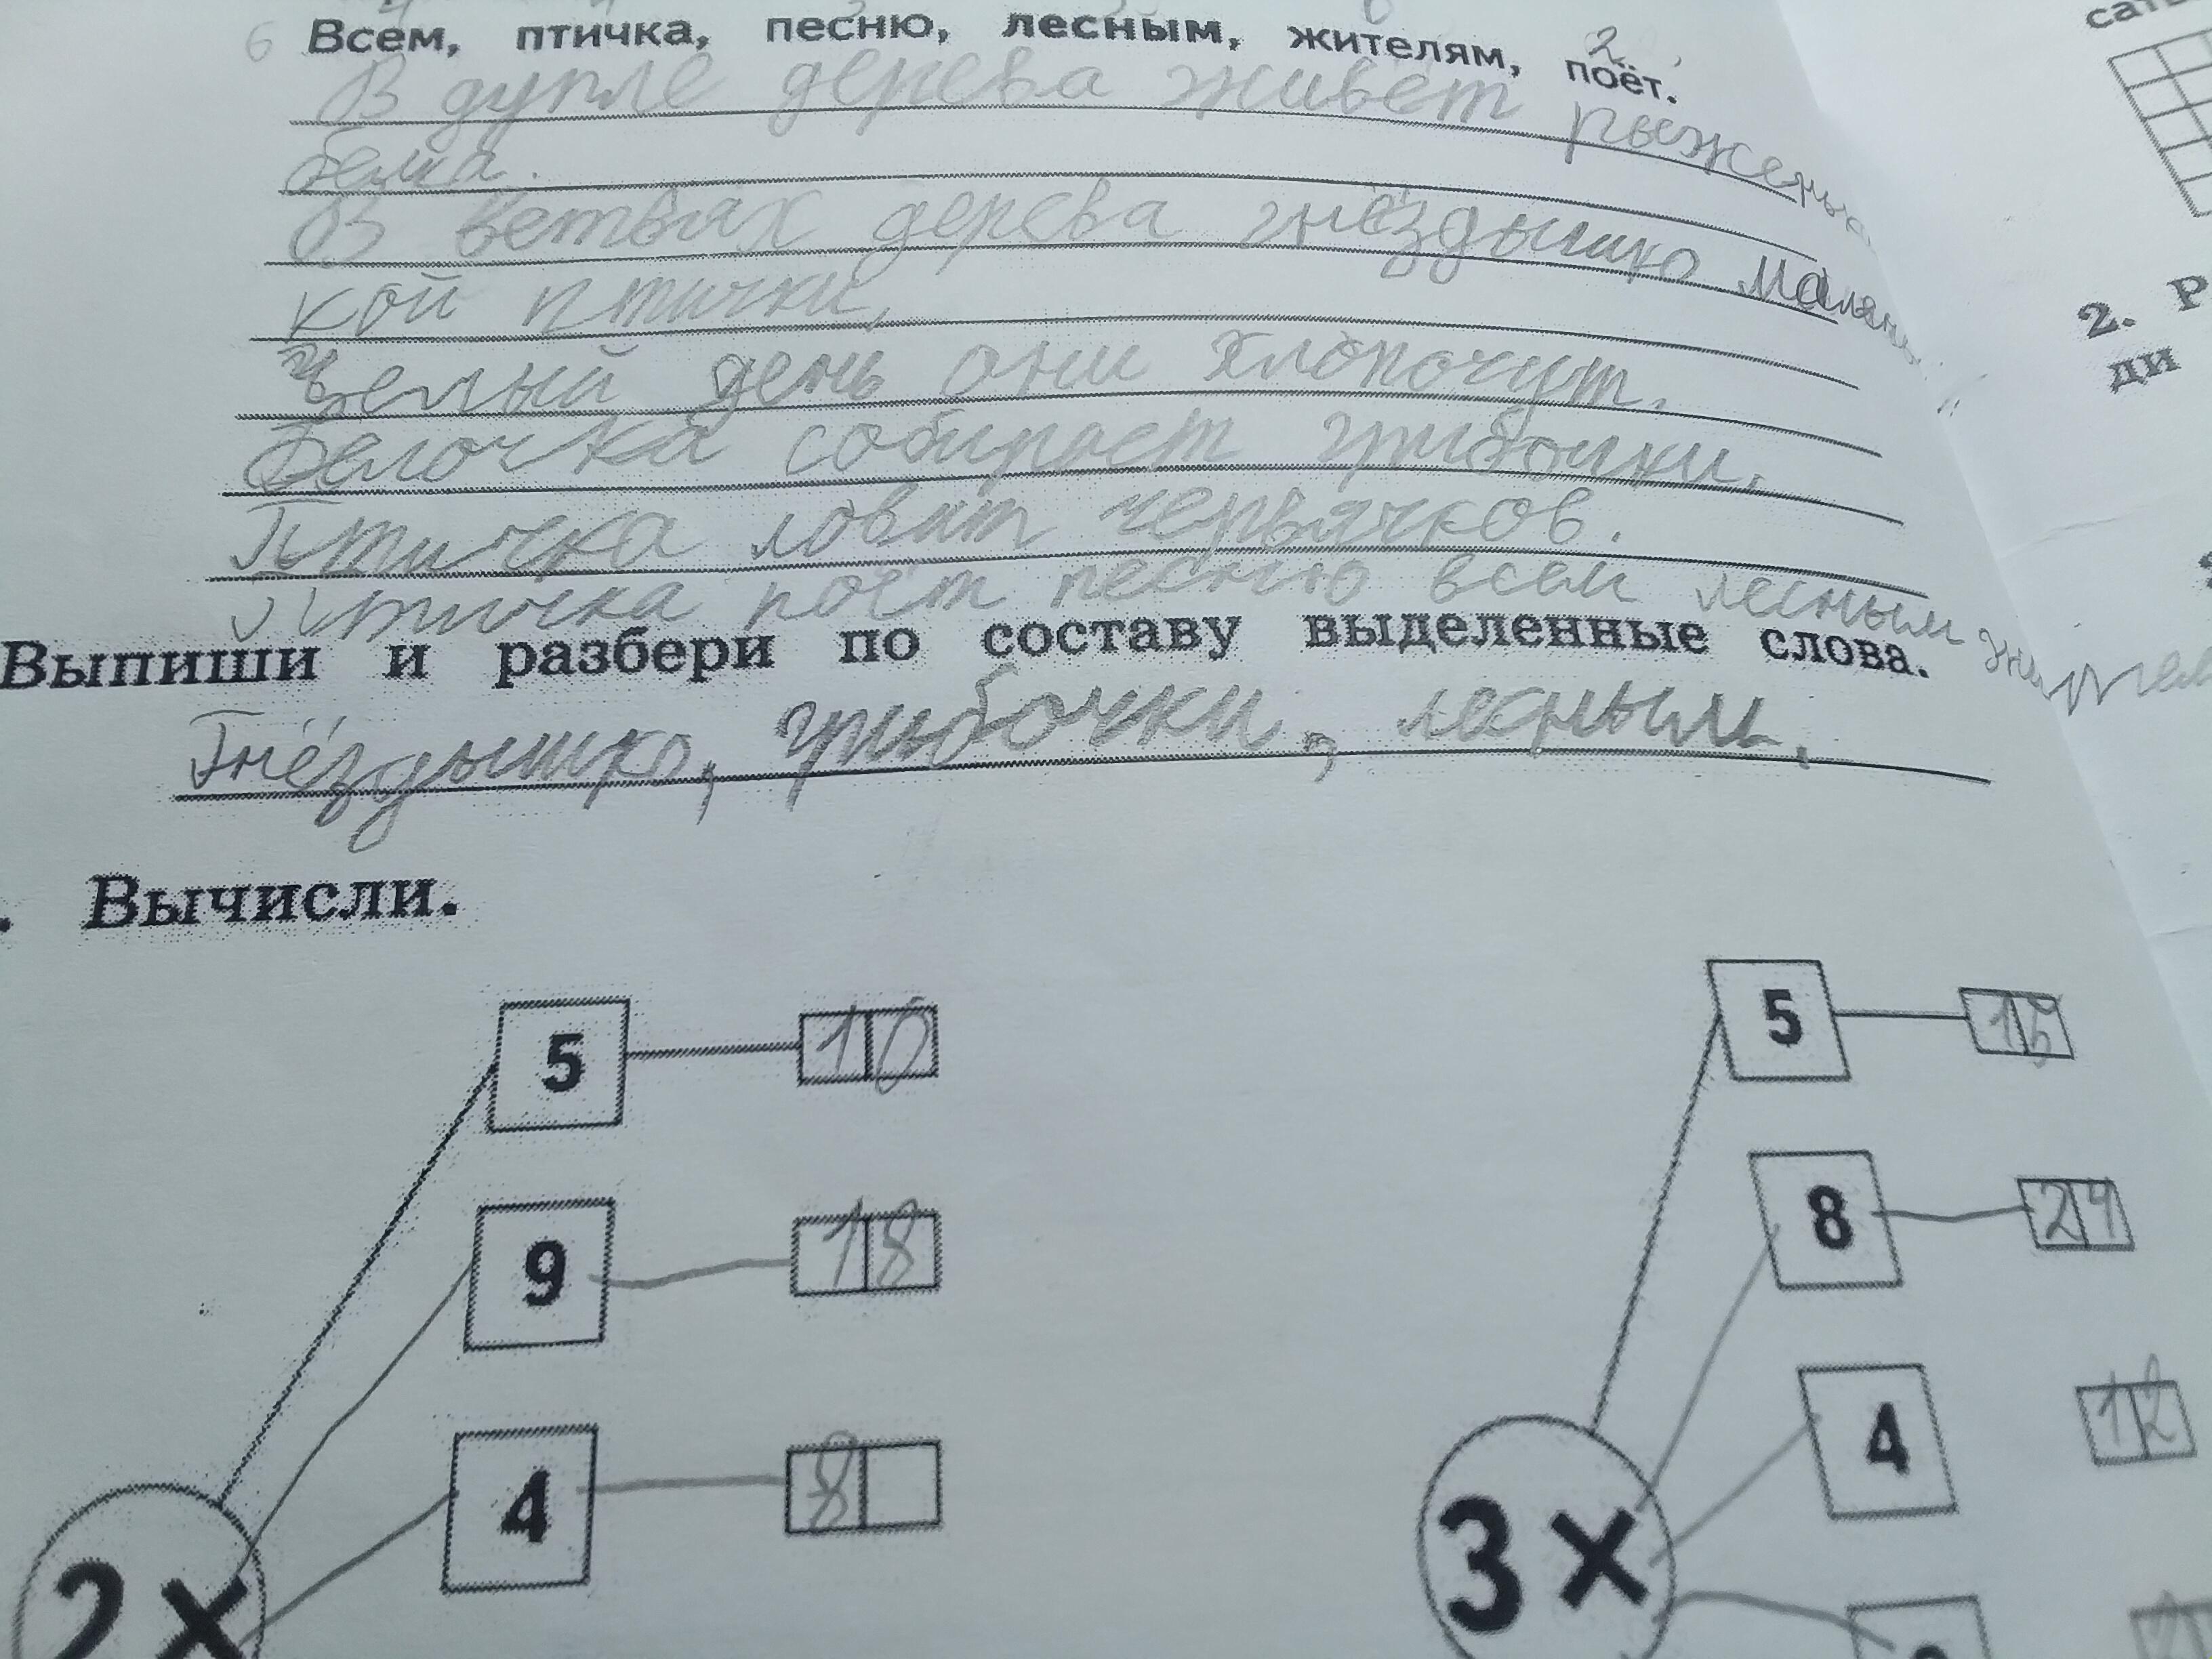 6 Всем, птичка, песню, лесным, жителям, поёт.
2
В дупле дерева живёт рыженькая
белка.
В ветвях дерева гнёздышко малень
кой птички.
Целый день они хлопочут.
Белочка собирает грибочки.
Птичка ловит червячков.
Птичка поёт песню всем лесным
Выпиши и разбери по составу выделенные слова.
Гнёздышко, грибочки, лесным.
Вычисли.
5 10
9 18
4 8
2 ×
5 15
8 24
4 12
3 ×
2. Р
ди